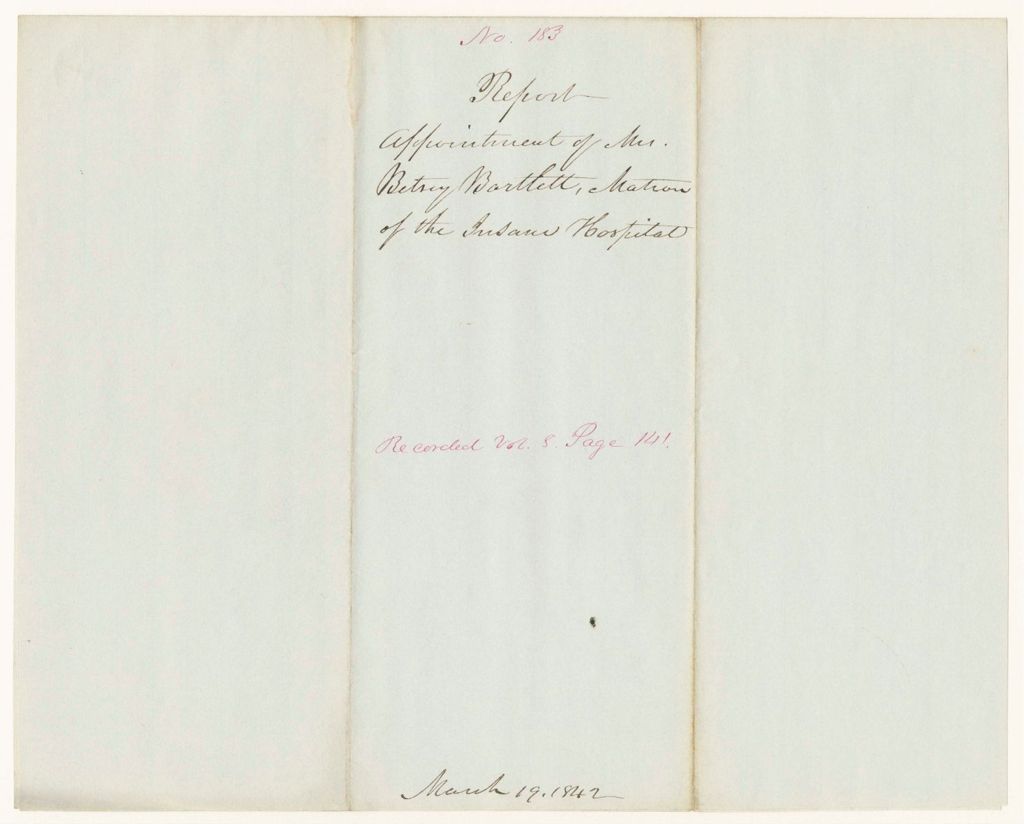 No. 183
Report
Appointment of Mrs.
Betsey Bartlett, Matron
of the Insane Hospital
Recorded Vol. 5. Page 141.
March 19. 1842